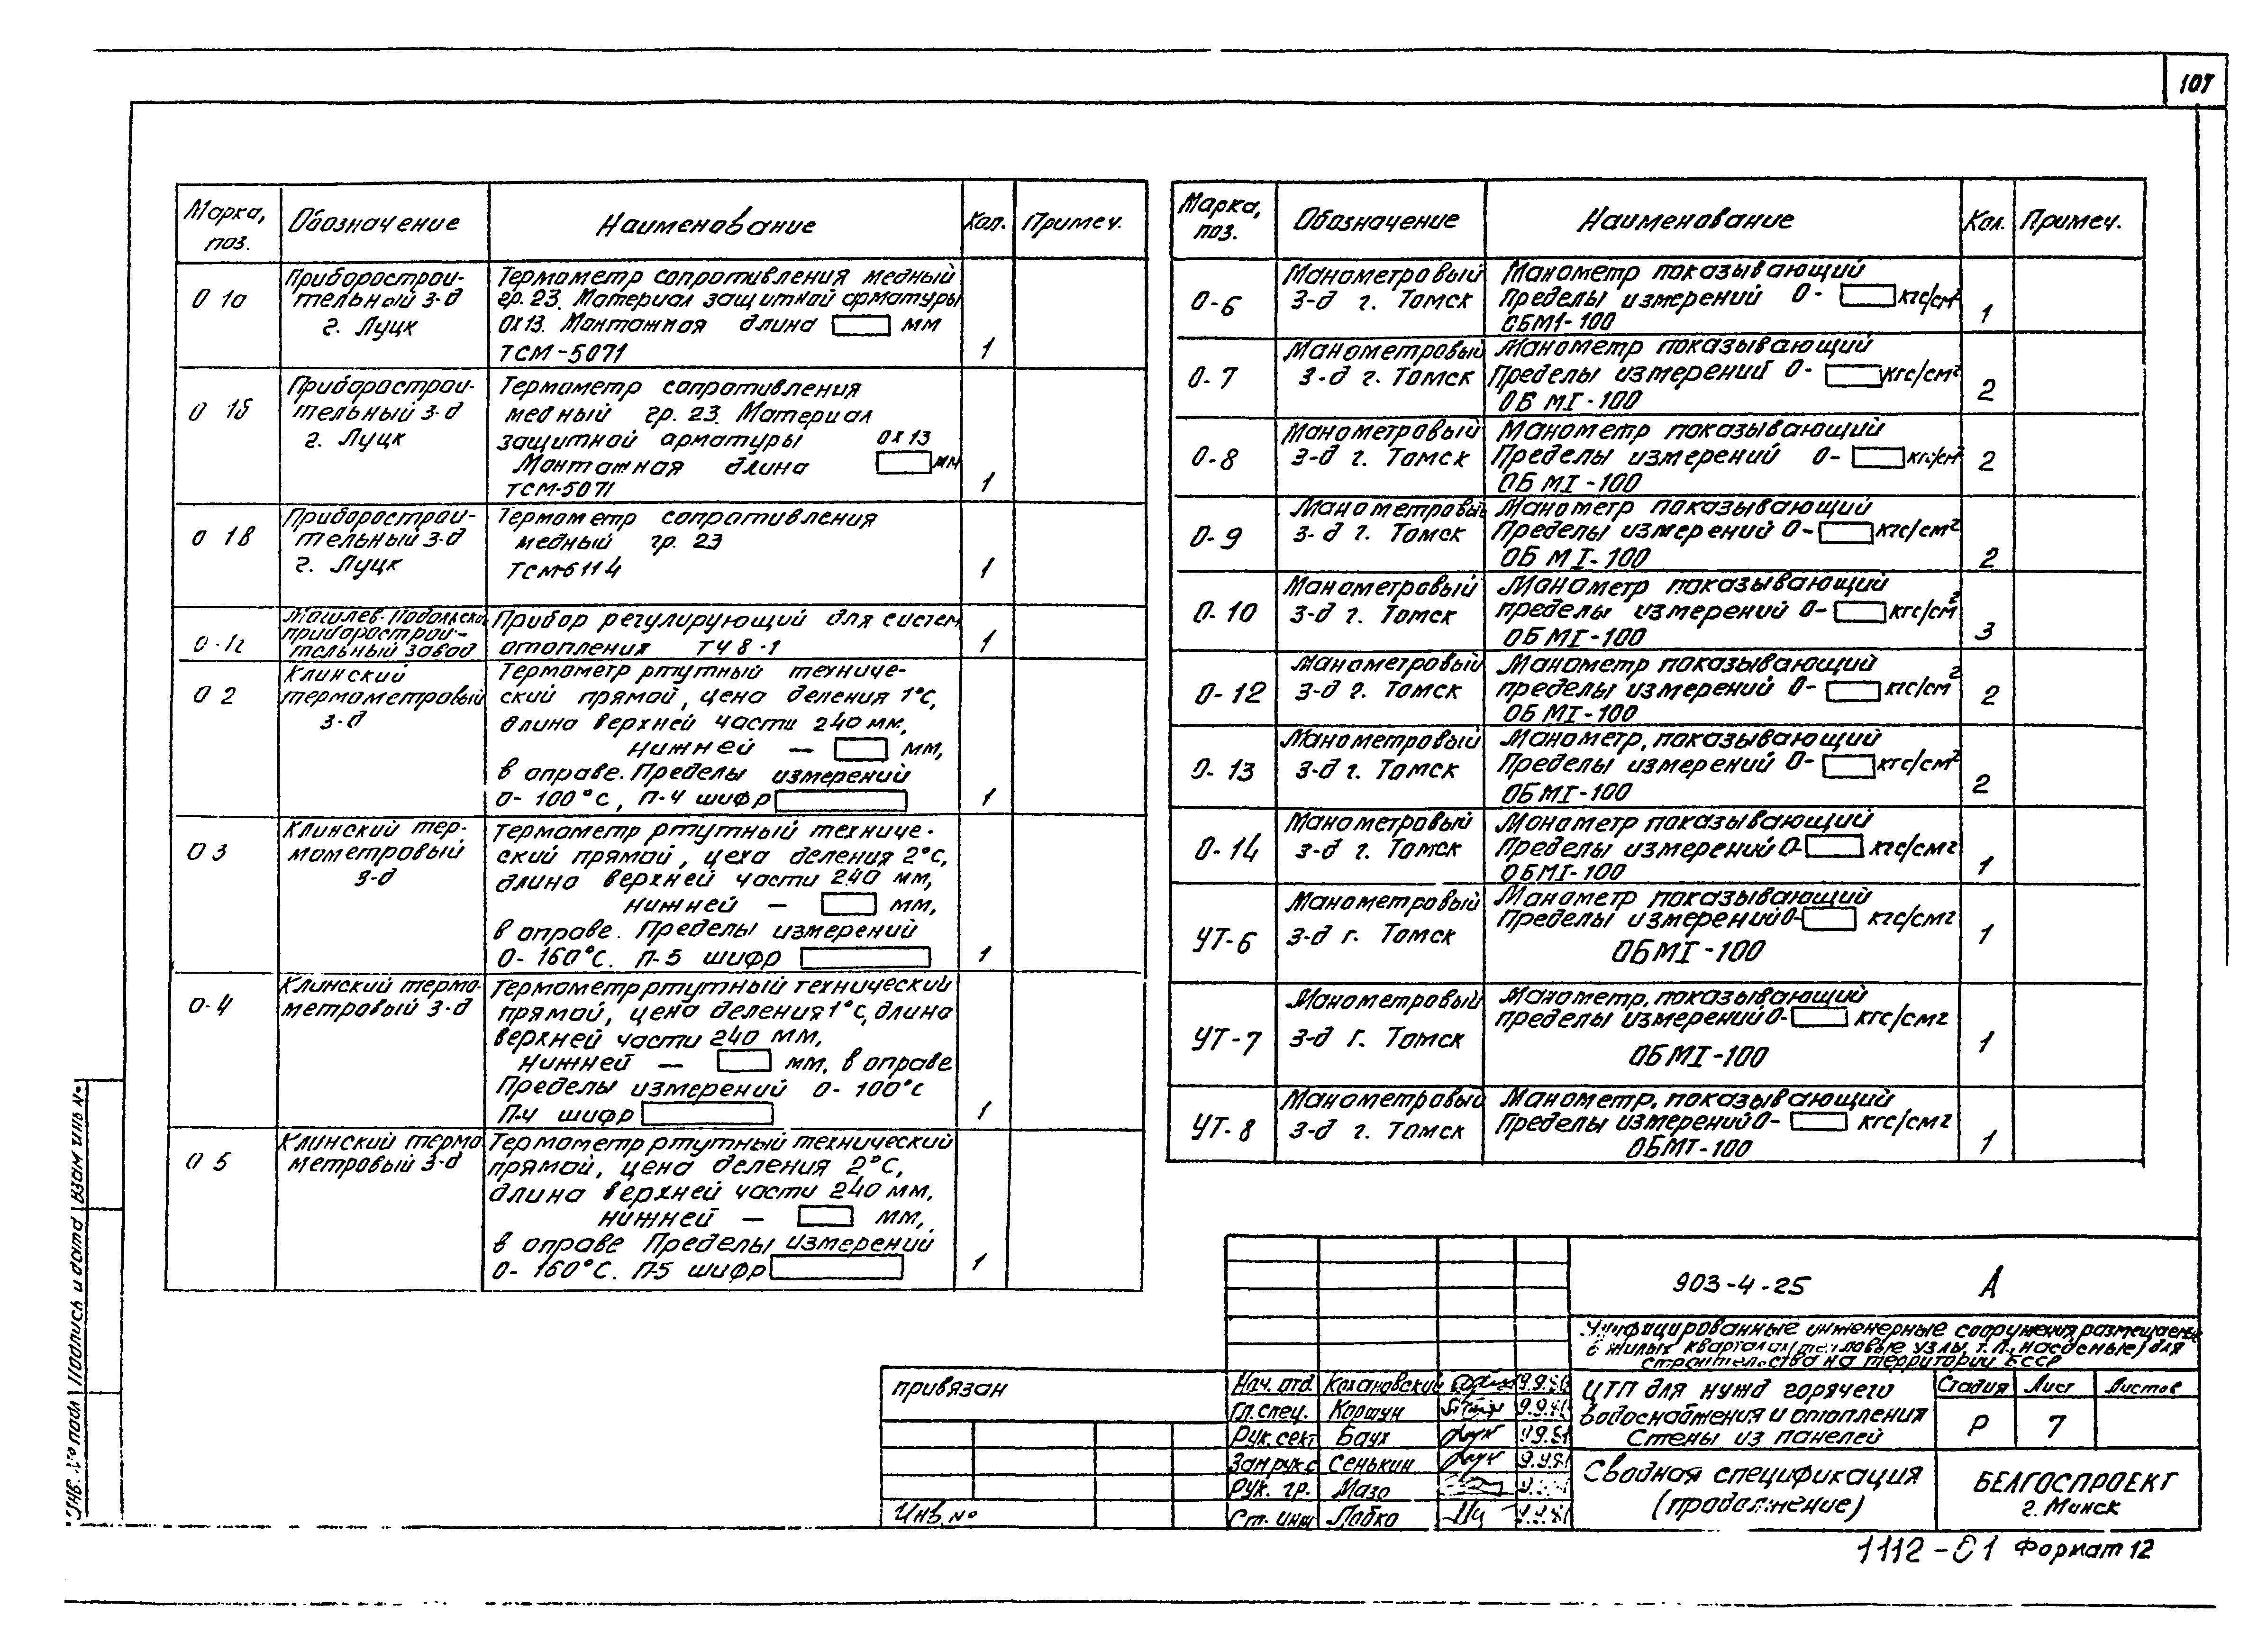 107
Марка, поз.
Обозначение
Наименование
Кол.
Примеч.
О 1а
Приборострои-
тельный з-д
г. Луцк
Термометр сопротивления медный
гр. 23. Материал защитной арматуры
ОХ13. Монтажная длина мм
ТСМ-5071
1
О 1б
Приборострои-
тельный з-д
г. Луцк
Термометр сопротивления
медный гр. 23. Материал
защитной арматуры ОХ13
Монтажная длина мм
ТСМ-5071
1
О 1в
Приборострои-
тельный з-д
г. Луцк
Термометр сопротивления
медный гр. 23
ТСМ-6114
1
О-1г
Могилев-Подольский
приборострои-
тельный завод
Прибор регулирующий для систем
отопления ТЧ8-1
1
О 2
Клинский
термометровый
з-д
Термометр ртутный техниче-
ский прямой, цена деления 1°С,
длина верхней части 240 мм,
нижней — мм,
в оправе. Пределы измерений
0-100°С, П-4 шифр
1
О 3
Клинский тер-
мометровый
з-д
Термометр ртутный техниче-
ский прямой, цена деления 2°С,
длина верхней части 240 мм,
нижней — мм,
в оправе. Пределы измерений
0-160°С. П-5 шифр
1
О-4
Клинский термо-
метровый з-д
Термометр ртутный технический
прямой, цена деления 1°С, длина
верхней части 240 мм,
нижней — мм, в оправе
Пределы измерений 0-100°С
П-4 шифр
1
О 5
Клинский термо
метровый з-д
Термометр ртутный технический
прямой, цена деления 2°С,
длина верхней части 240 мм,
нижней — мм,
в оправе Пределы измерений
0-160°С. П-5 шифр
1
Марка, поз.
Обозначение
Наименование
Кол.
Примеч.
О-6
Манометровый
з-д г. Томск
Манометр показывающий
Пределы измерений 0- кгс/см²
ОБМ1-100
1
О-7
Манометровый
з-д г. Томск
Манометр показывающий
Пределы измерений 0- кгс/см²
ОБМI-100
2
О-8
Манометровый
з-д г. Томск
Манометр показывающий
Пределы измерений 0- кгс/см²
ОБМI-100
2
О-9
Манометровый
з-д г. Томск
Манометр показывающий
Пределы измерений 0- кгс/см²
ОБМI-100
2
О-10
Манометровый
з-д г. Томск
Манометр показывающий
пределы измерений 0- кгс/см²
ОБМI-100
3
О-12
Манометровый
з-д г. Томск
Манометр показывающий
пределы измерений 0- кгс/см²
ОБМI-100
2
О-13
Манометровый
з-д г. Томск
Манометр, показывающий
Пределы измерений 0- кгс/см²
ОБМI-100
2
О-14
Манометровый
з-д г. Томск
Манометр показывающий
Пределы измерений 0- кгс/см2
ОБМI-100
1
УТ-6
Манометровый
з-д г. Томск
Манометр показывающий
Пределы измерений 0- кгс/см2
ОБМI-100
1
УТ-7
Манометровый
з-д г. Томск
Манометр, показывающий
пределы измерений 0- кгс/см2
ОБМI-100
1
УТ-8
Манометровый
з-д г. Томск
Манометр, показывающий
Пределы измерений 0- кгс/см2
ОБМI-100
1
903-4-25 А
Унифицированные инженерные сооружения, размещаемые
в жилых кварталах (тепловые узлы, т.п., насосные) для
строительства на территории БССР
привязан
Инв. №
Нач. отд. Кохановский
Гл. спец. Коршун
Рук. сект Баух
Зам рук.с Сенькин
Рук. гр. Мазо
Ст. инж Лобко
ЦТП для нужд горячего
водоснабжения и отопления
Стены из панелей
Стадия Лист Листов
Р 7
Сводная спецификация
(продолжение)
БЕЛГОСПРОЕКТ
г. Минск
1112-01 Формат 12
Инв. № подл Подпись и дата Взам инв №